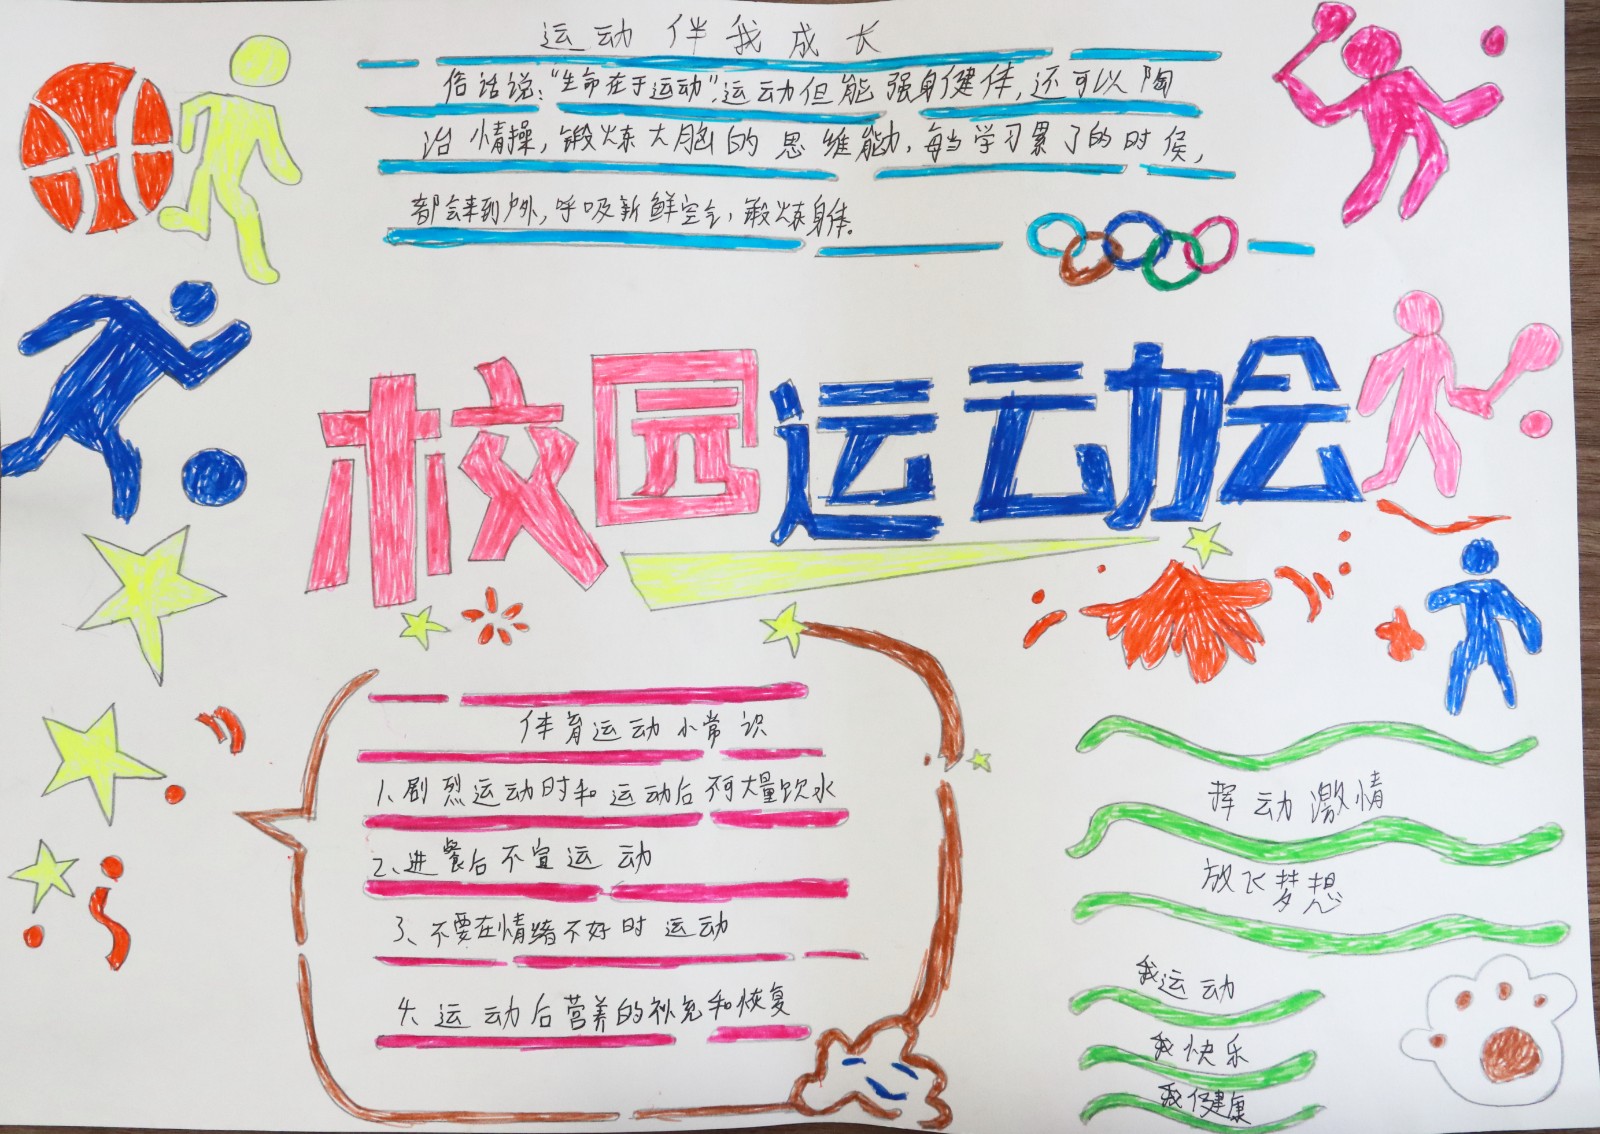 运动伴我成长
俗话说:“生命在于运动”.运动但能强身健体,还可以陶
冶情操,锻炼大脑的思维能力,每当学习累了的时侯,
都会来到户外,呼吸新鲜空气,锻炼身体。
校园运动会
体育运动小常识
1、剧烈运动时和运动后不可大量饮水
2、进餐后不宜运动
3、不要在情绪不好时运动
4、运动后营养的补充和恢复
挥动激情
放飞梦想
我运动
我快乐
我健康